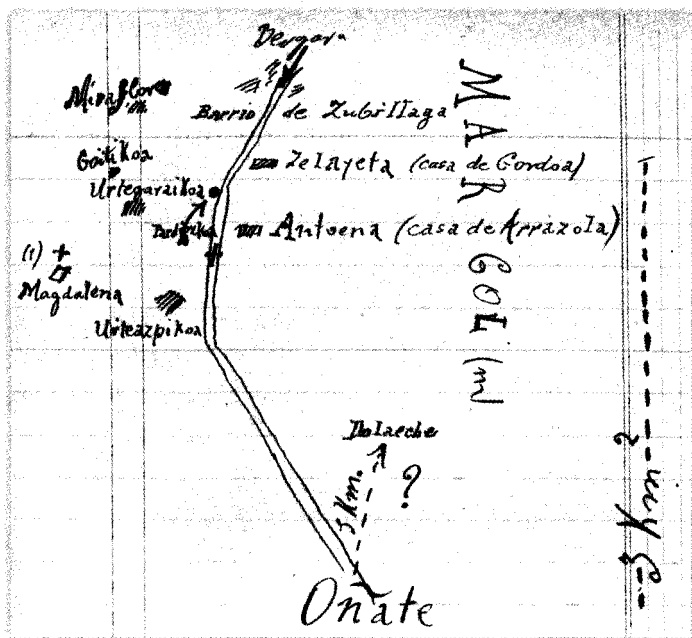 Vergara
Miraflores
Barrio de Zubillaga
Goitikoa
Zelayeta (casa de Gordoa)
Urtegaraikoa
Antoena (casa de Arrazola)
(1)
Magdalena
Urteazpikoa
MARGOL (m)
Dolaeche
3 Km.
?
3 Km
?
Oñate